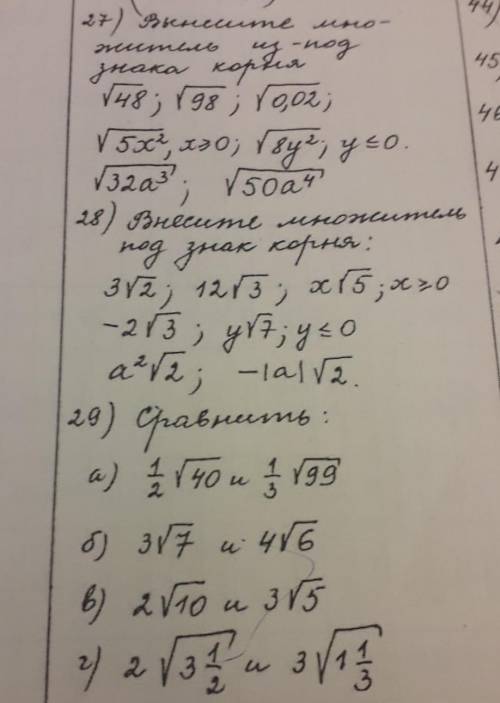 27) Вынесите мно-
житель из-под
знака корня
√48; √98; √0,02;
√5x², x≥0; √8y²; y≤0.
√32a³; √50a⁴
28) Внесите множитель
под знак корня:
3√2; 12√3; x√5; x≥0
-2√3; y√7; y≤0
a²√2; -|a|√2.
29) Сравнить:
а) 1/2 √40 и 1/3 √99
б) 3√7 и 4√6
в) 2√10 и 3√5
г) 2√3 1/2 и 3√1 1/3
44)
45
46
4